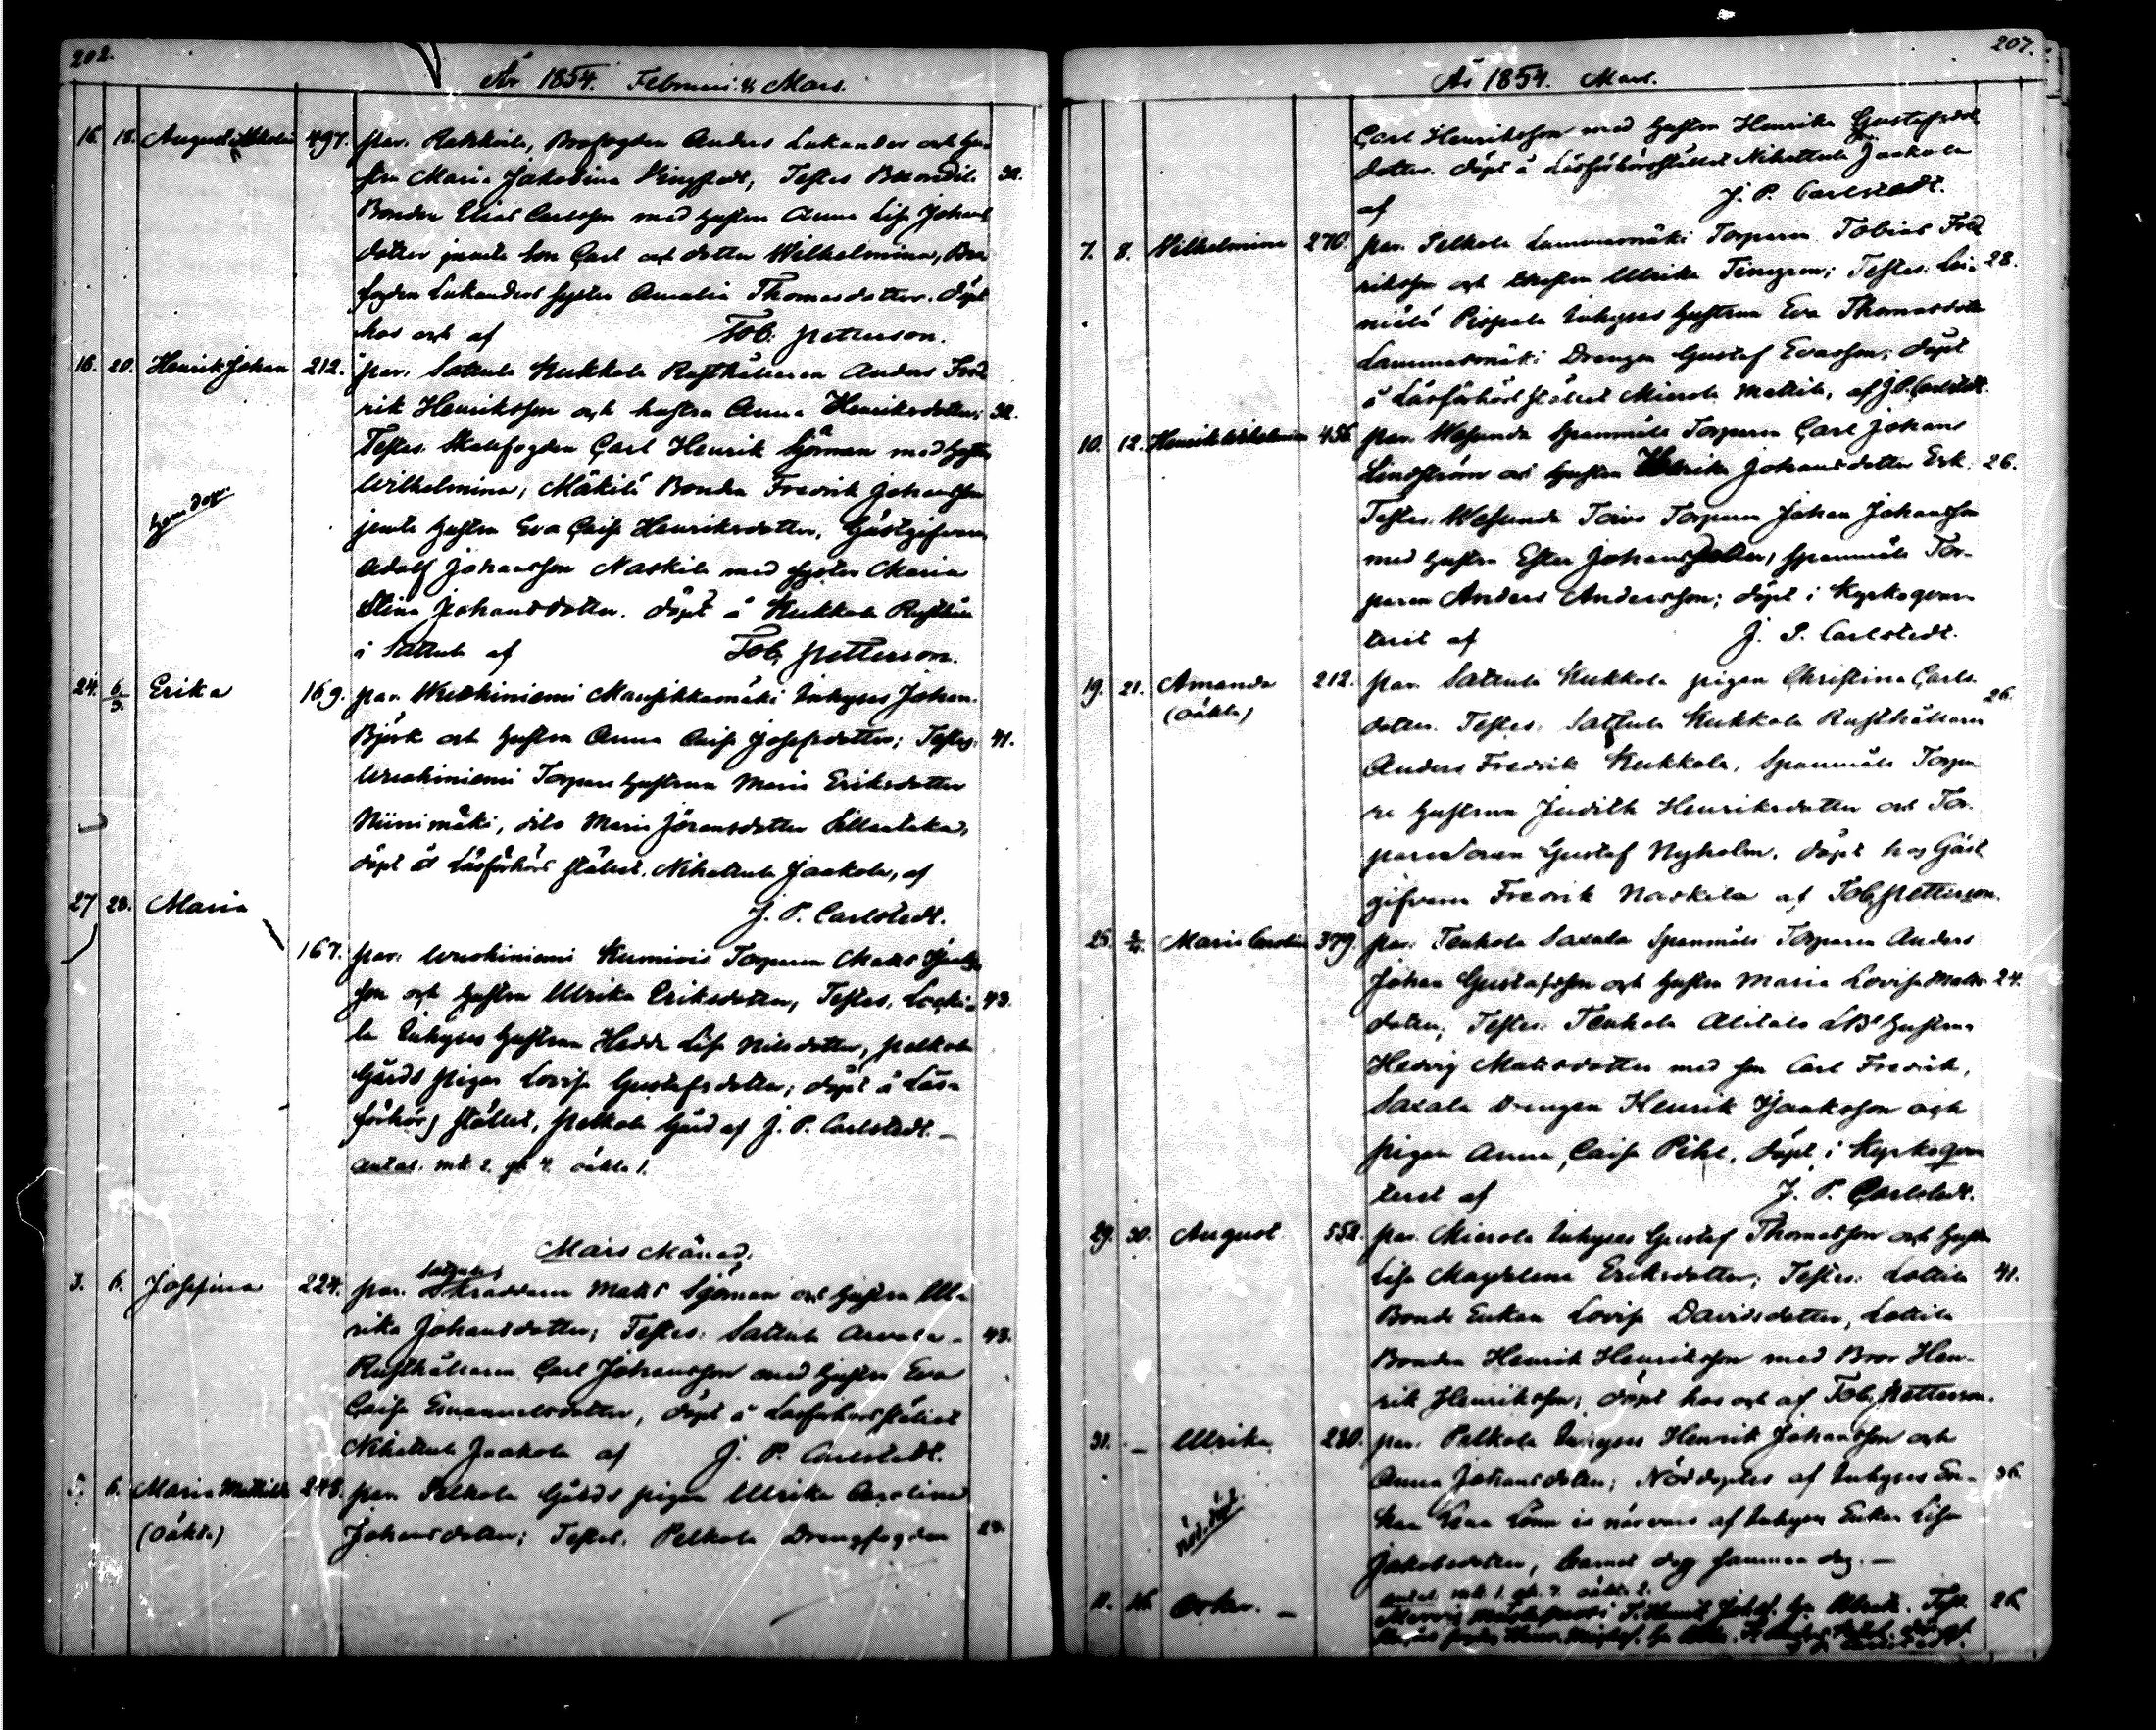 202.
År 1854. Februari & Mars.
16. 18. August 497. par. Rekkoila, Brofogden Anders Lukander och hu-
stru Maria Jakobina Testes 32.
Bonden Elias Carlsson med hustru Anna Lisa Johans
dotter jemte Son Carl och dotter Wilhelmina, Bro
fogden Lukanders syster Amalia Thomasdotter. döpt
hos och af Tob. Petterson.
16. 20. Henrik Johan 212. par. Sattula Kukkola Rusthållaren Anders Fred
rik Henriksson och hustru Anna Henriksdotter; 32.
Testes. Skallfogden Carl Henrik Sjöman med hustru
Wilhelmina, Mäkilä Bonden Fredrik Johansson
hemdop
jemte hustru Eva Caisa Henriksdotter, Gästgifvaren
Adolf Johansson Naskila med syster Maria
Stina Johansdotter. döpt å Kukkola Rusthåll
i Sattula af Tob. Petterson.
24. 6/3. Erika 169. par. Wuohiniemi Mansikkamäki Inhyses Johan
Björk och hustru Anna Caisa Josefsdotter; Testes: 41.
Wuohiniemi Torpare hustrun Maria Eriksdotter
Niinimäki, dito Maria Göransdotter
döpt å Läsförhörs stället, Nihattula Jaakola, af
27 28. Maria
J. P. Carlstedt.
167. par. Wuohiniemi Torparen Matts
son och hustru Ullrika Eriksdotter, Testes. Lepi- 43.
la Inhyses hustrun Hedda Lisa Nilsdotter, Pelkola
Gårds pigan Lovisa Gustafsdotter; döpt å Läs-
förhörs stället, Pelkola Gård af J. P. Carlstedt. –
Antal. mk. 2. qk. 4. oäkta 1.
Mars Månad.
3. 6. Josefina 224. par. Sattula Skraddaren Matts Sjöman och hustru Ull-
rika Johansdotter; Testes: Sattula Arvola – 43.
Rusthållaren Carl Johansson med hustru Eva
Caisa Emanuelsdotter, döpt å Läsförhörsstället
Nihattula Jaakola af J. P. Carlstedt.
5. 6. Maria Mathilda 248. par. Pelkola Gårds pigan Ullrika Carolina
(Oäkta.) Johansdotter; Testes. Pelkola Drengfogden
207.
År 1854. Mars.
Carl Henriksson med hustru Henrika Gustafs
dotter. döpt å Läsförhörsstället Nihattula Jaakola
af J. P. Carlstedt.
7. 8. Wilhelmina 270. par. Pelkola Lammasmäki Torparen Tobias Fred
riksson och hustru Ullrika Tenngren; Testes: Lei- 28.
niälä Pispala Inhyses hustrun Eva Thomasdotter
Lammasmäki Drengen Gustaf Evasson; döpt
å Läsförhörs stället Mierola Mattila, af J. P. Carlstedt.
10. 12. Henrik Wilhelmina 456. par. Wesunda Spannmåls Torparen Carl Johans
Lindström och hustru Ullrika Johansdotter Erk. 26.
Testes. Wesunda Toivo Torparen Johan Johansson
med hustru Ester Johansdotter, Spannmåls Tor-
paren Anders Andersson; döpt i Kyrkoqvar-
teret af J. P. Carlstedt.
19. 21. Amanda 212. par. Sattula Kukkola pigan Christina Carls
(Oäkta) 26.
dotter. Testes. Sattula Kukkola Rusthållaren
Anders Fredrik Kukkola, Spannmåls Torpa
re hustrun Judith Henriksdotter och Tor-
paresonen Gustaf Nyholm. döpt hos Gäst
gifvaren Fredrik Naskila af Tob. Petterson.
25. 2/4. Maria Carolina 379. par. Tenhola Saxala Spanmåls Torparen Anders
Johan Gustafsson och hustru Maria Lovisa Matts- 24.
dotter, Testes. Tenhola Alitalo LBs hustrun
Hedvig Mattsdotter med son Carl Fredrik,
Saxala Drengen Henrik Isaksson och
pigan Anna Caisa Pihl. döpt i Kyrkoqvar
teret af J. P. Carlstedt.
29. 30. August 552. par. Mierola Inhyses Gustaf Thomasson och hustru
Lisa Magdalena Eriksdotter; Testes: Lottila 41.
Bonde Enkan Lovisa Davidsdotter, Lottila
Bonden Henrik Henriksson med Bror Hen-
rik Henriksson; döpt hos och af Tob. Petterson.
31. – Ullrika 280. par. Pelkola Inhyses Henrik Johansson och
Anna Johansdotter; Nöddöptes af Inhyses En- 36.
nöd. döpt. kan Lena Lönn i närvaro af Inhyses Enkan Lisa
Jakobsdotter, Barnet dog samma dag. –
Antal mk. 1. qk. 7. oäkta 2.
11. 16. Oskar. – 26.